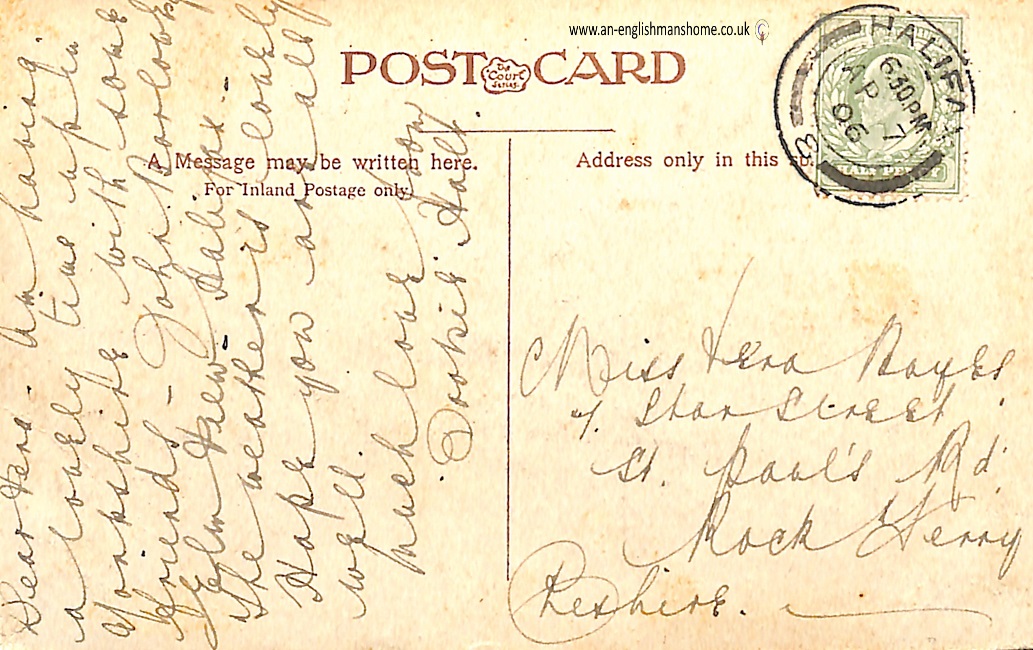 www.an-englishmanshome.co.uk
POST CARD
The Court Series.
A Message may be written here.
For Inland Postage only.
Address only in this
HALIFAX
6.30PM
AP 7
06
HALFPENNY
Dear Vera - Am having
a lovely time up in
Yorkshire with some
friends - John
Elm View Halifax.
The weather is lovely
Hope you are all
well.
Much love from
Hall
Miss Vera Bayes
7. Star Street
St. Paul's Rd.
Rock Ferry
Cheshire.